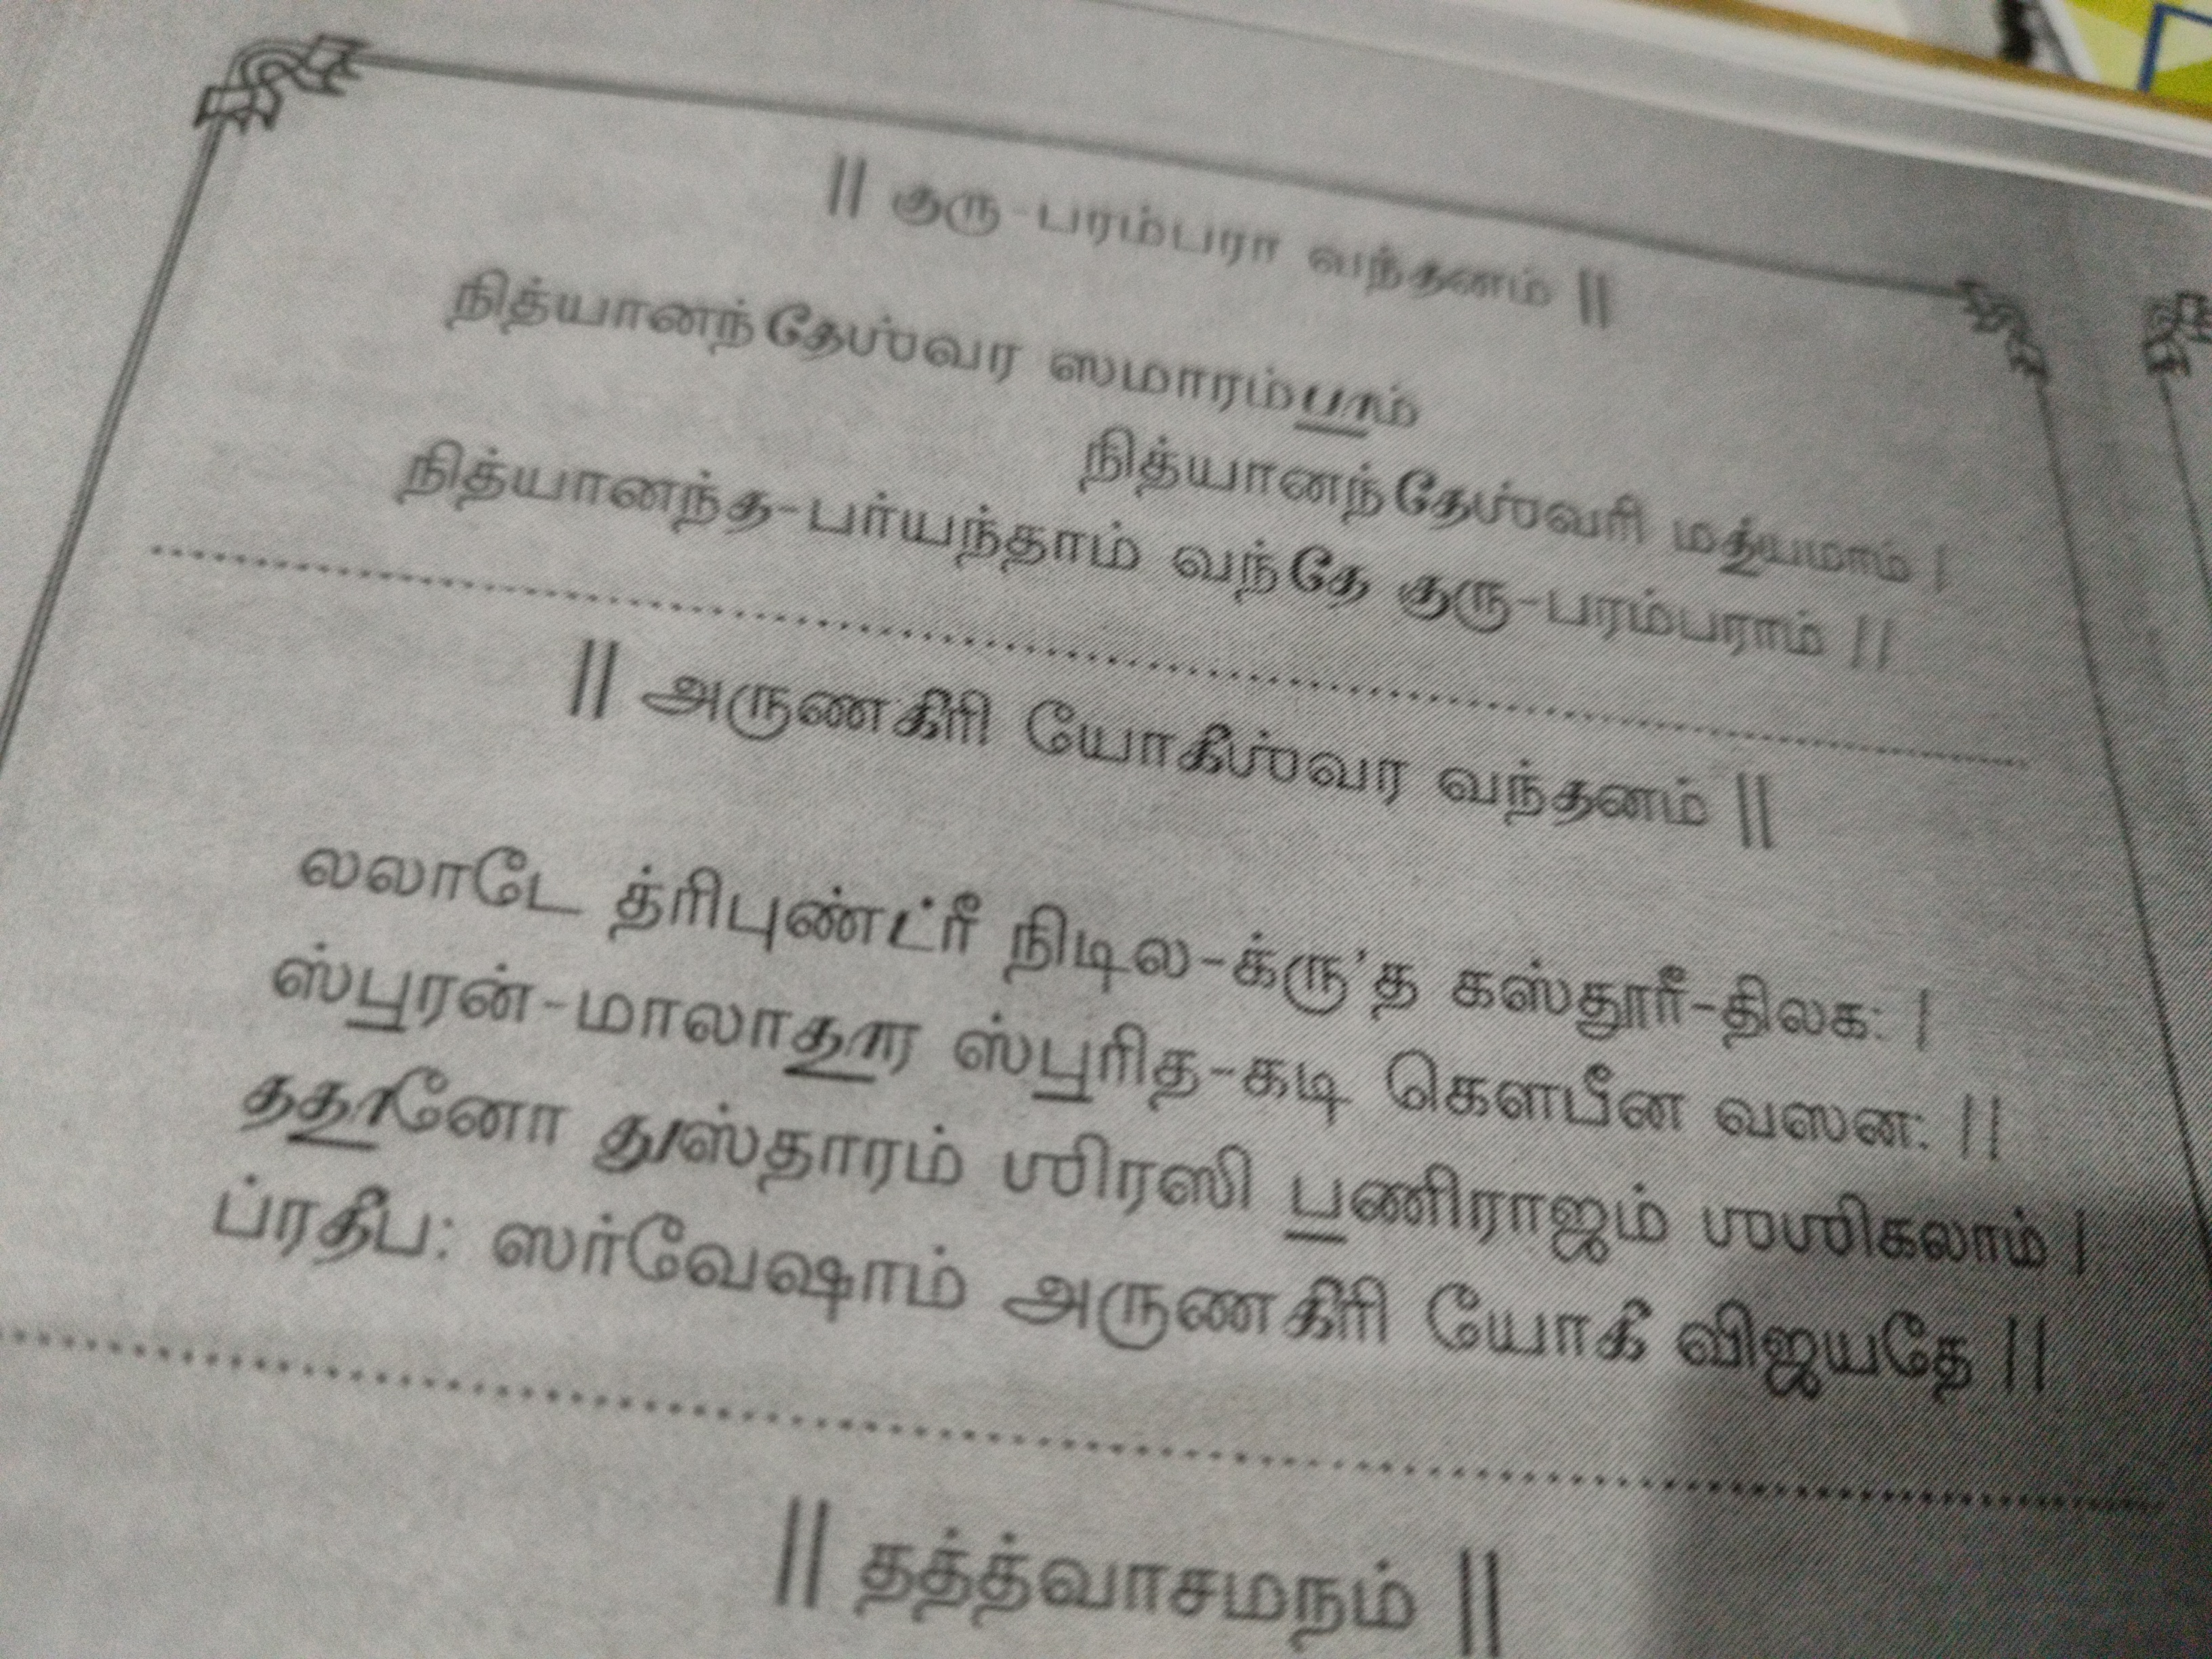 || குரு-பரம்பரா வந்தனம் ||
நித்யானந்தேஶ்வர ஸமாரம்பாம்
நித்யானந்தேஶ்வரி மத்யமாம் |
நித்யானந்த-பர்யந்தாம் வந்தே குரு-பரம்பராம் ||
|| அருணகிரி யோகீஶ்வர வந்தனம் ||
லலாடே த்ரிபுண்ட்ரீ நிடில-க்ரு'த கஸ்தூரீ-திலக: |
ஸ்புரன்-மாலாதார ஸ்புரித-கடி கௌபீன வஸன: ||
ததானோ துஸ்தாரம் ஶிரஸி பணிராஜம் ஶஶிகலாம் |
ப்ரதீப: ஸர்வேஷாம் அருணகிரி யோகீ விஜயதே ||
|| தத்த்வாசமநம் ||